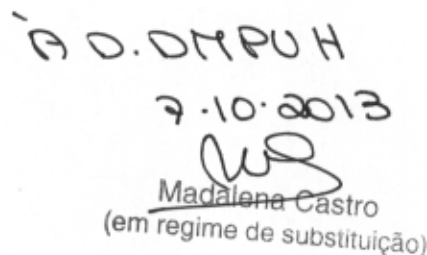 À D. DMPUH
7.10.2013
Madalena Castro
(em regime de substituição)